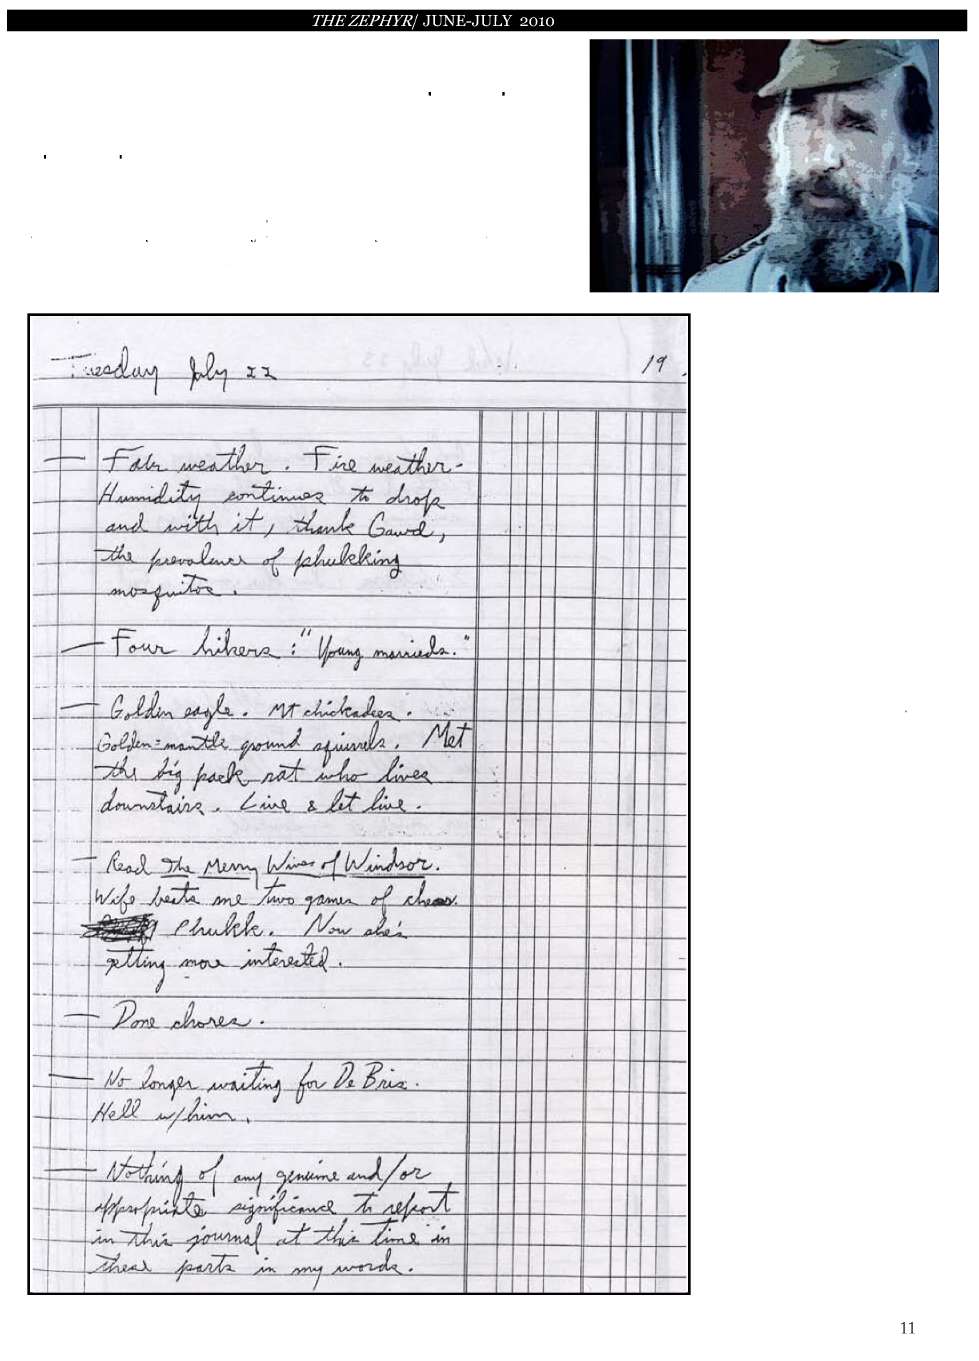 THE ZEPHYR/ JUNE-JULY 2010
Tuesday July 22
19
— Fair weather. Fire weather-
Humidity continues to drop
and with it, thank Gawd,
the prevalence of phukking
mosquitos.
— Four hikers: "Young marrieds."
— Golden eagle. Mt chickadees.
Golden-mantle ground squirrels. Met
the big pack rat who lives
downstairs. Live & let live.
— Read The Merry Wives of Windsor.
Wife beats me two games of chess.
Phukk. Now she's
getting more interested.
— Done chores.
— No longer waiting for De Bris.
Hell w/him.
— Nothing of any genuine and/or
appropriate significance to report
in this journal at this time in
these parts in my words.
11